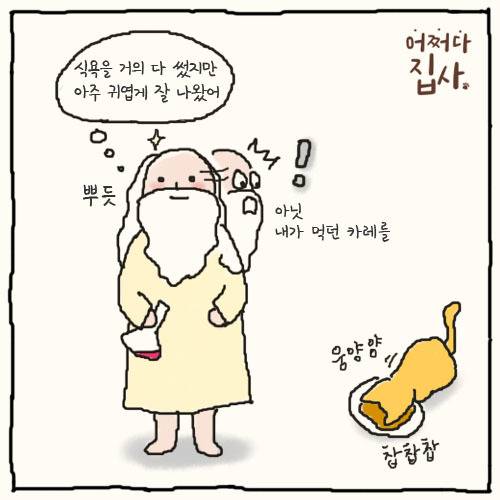 어쩌다
집사
식욕을 거의 다 썼지만
아주 귀엽게 잘 나왔어
뿌듯
!
아닛
내가 먹던 카레를
웅얌얌
찹찹찹